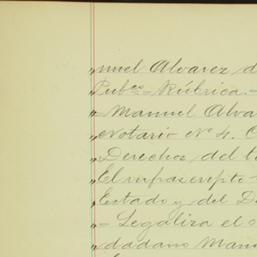 „nuel Alvarez d
Pub.cos = Rúbrica. =
= Manuel Alva
„Notario Nº 4. C
„Derechos del t
„El infrascripto
„Estado y del D
„= Legaliza el s
„dadano Manu